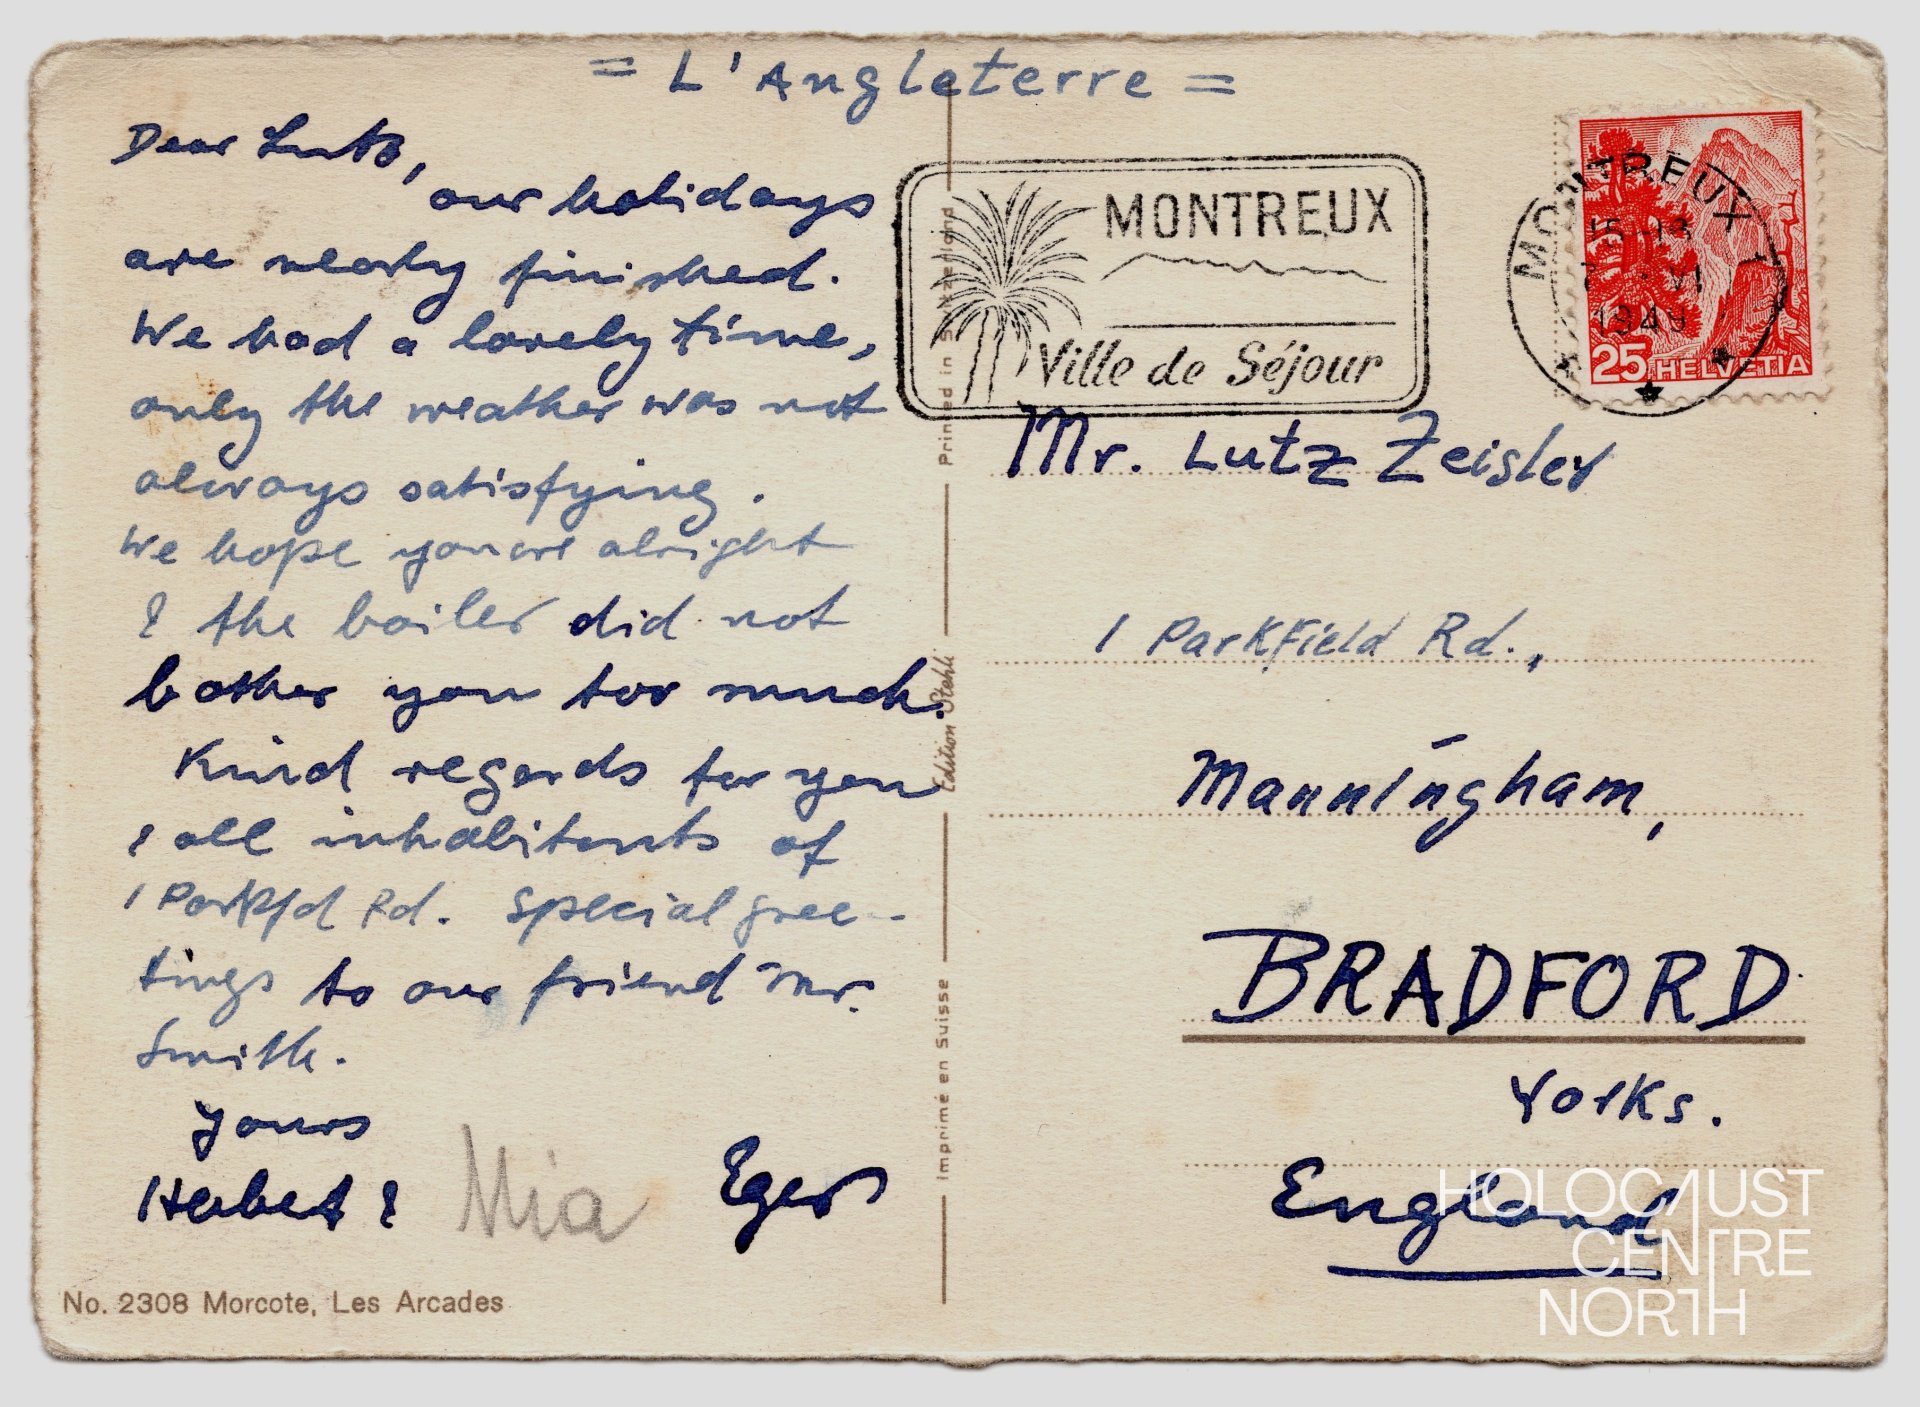 = L'Angleterre =
Dear Lutz,
our holidays
are nearly finished.
We had a lovely time,
only the weather was not
always satisfying.
We hope you are alright
& the boiler did not
bother you too much.
Kind regards for you
& all inhabitants of
1 Parkfd Rd. Special gree-
tings to our friend Mr.
Smith.
Yours
Herbert & Mia Eger
No. 2308 Morcote, Les Arcades
Printed in Switzerland
Edition Stehli
Imprimé en Suisse
MONTREUX
Ville de Séjour
MONTREUX 1
1949
25 HELVETIA
Mr. Lutz Zeisler
1 ParkField Rd.,
Manningham,
BRADFORD
Yorks.
England
HOLOCAUST
CENTRE
NORTH